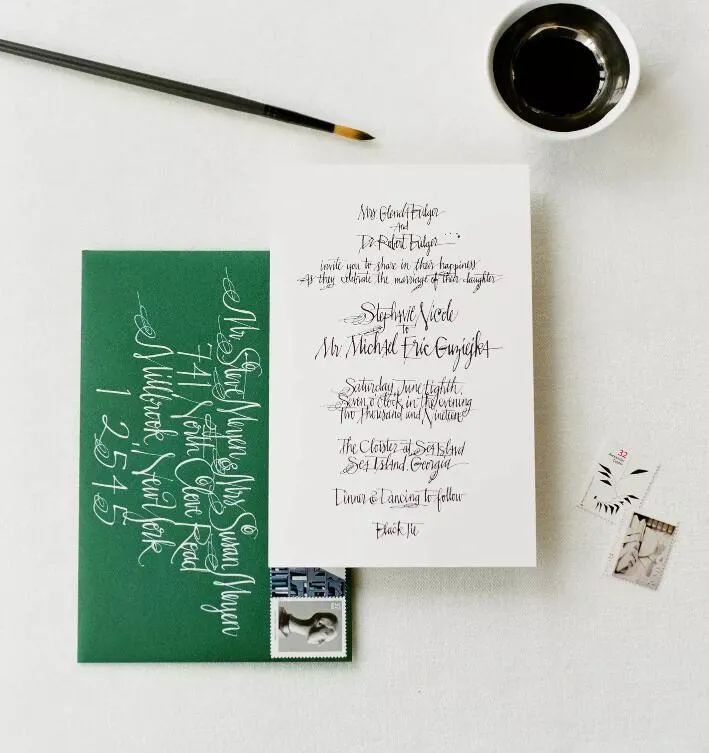 Mrs Glenda Bulger
And
Dr Robert Bulger
invite you to share in their happiness
As they celebrate the marriage of their daughter
Stephanie Nicole
to
Mr Michael Eric Guziejka
Saturday, June Eighth
Seven o'clock in the evening
Two Thousand and Nineteen
The Cloister at Sea Island
Sea Island, Georgia
Dinner & Dancing to follow
Black Tie
Mr Steve Noyen & Mrs Susan Noyen
741 North Road
Millbrook, New York
12545
32